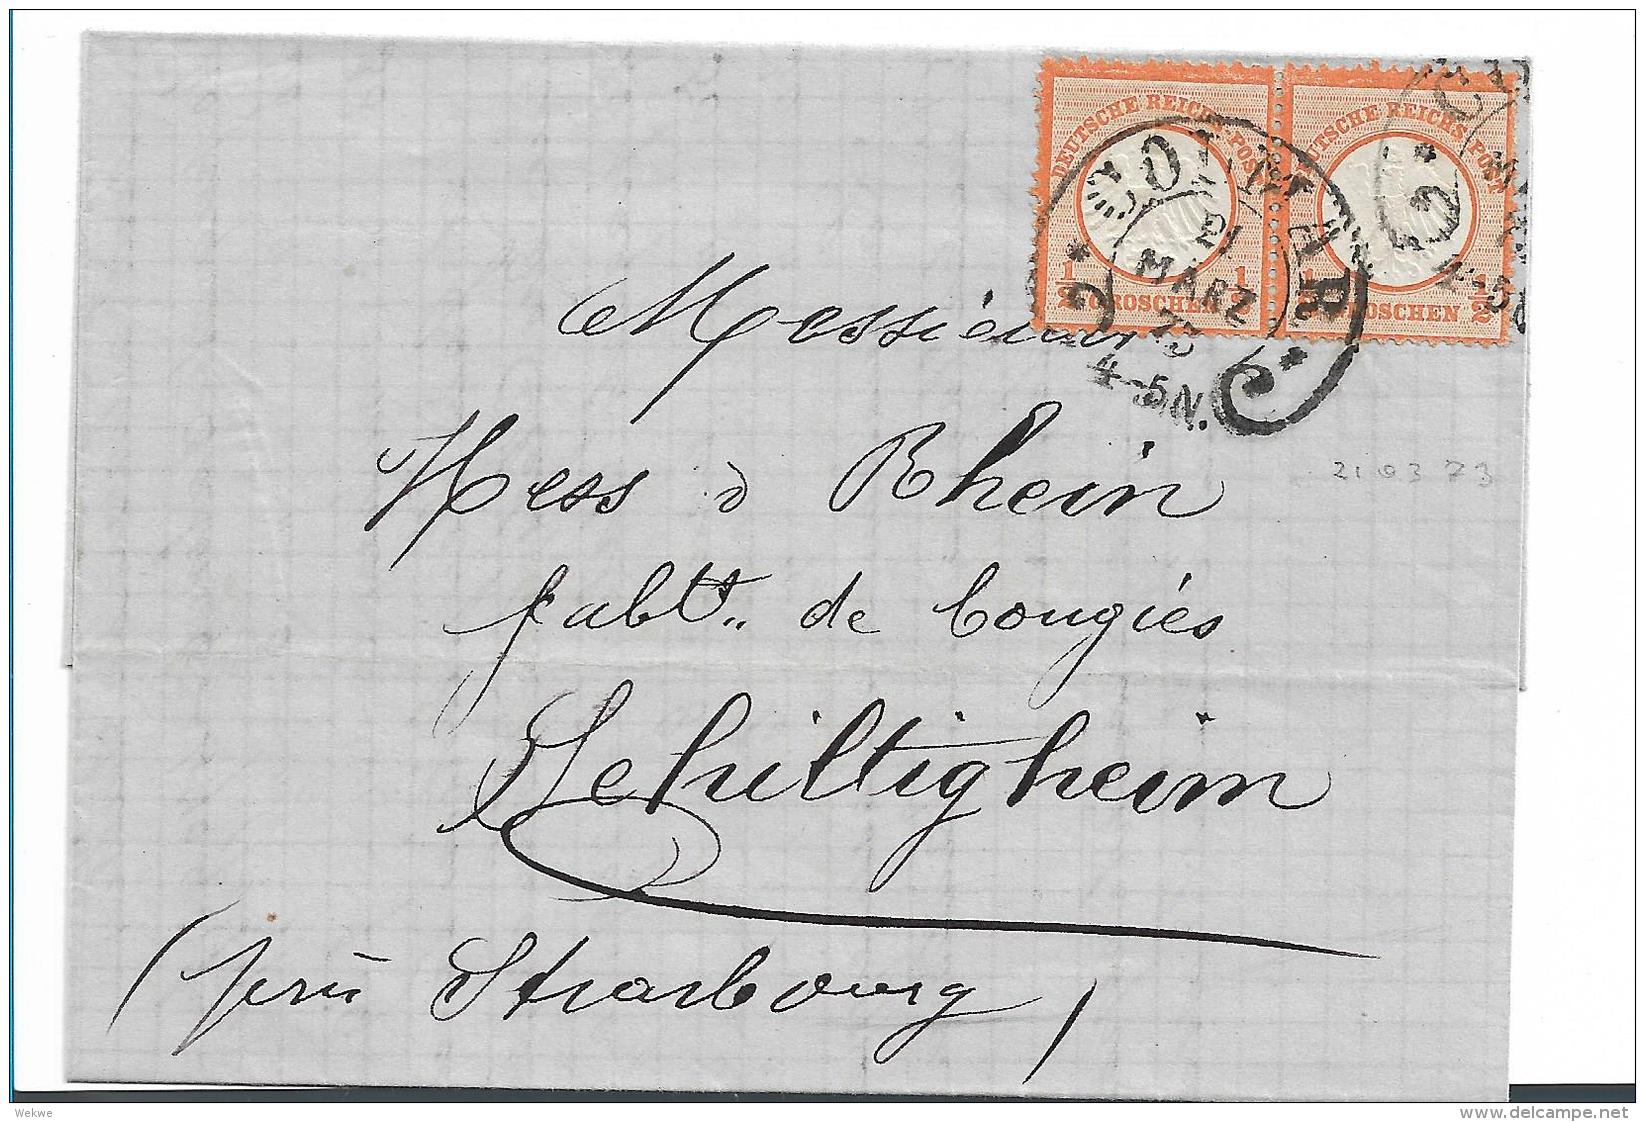 DEUTSCHE REICHS-POST
1/2 GROSCHEN 1/2
DEUTSCHE REICHS-POST
1/2 GROSCHEN 1/2
* COLMAR *
21
MÄRZ
73
4-5N.
Messieurs
Hess & Rhein
fabts. de bougies
Schiltigheim
(près Strasbourg)
21 03 73
Wekwe
www.delcampe.net